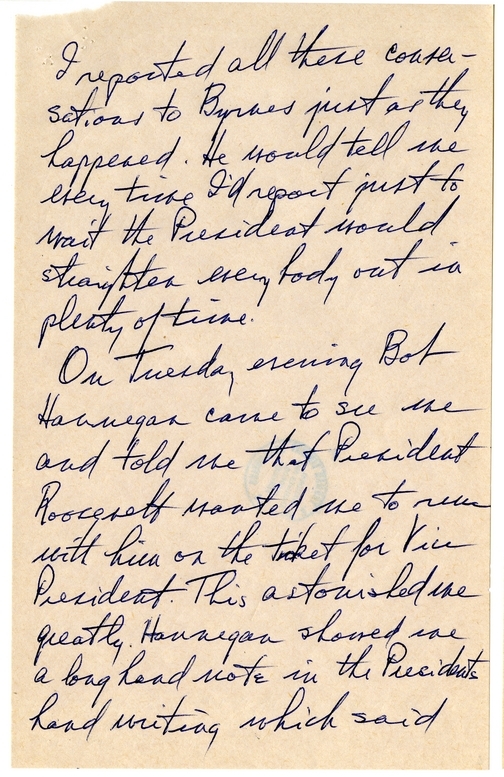 I reported all these conver-
sations to Byrnes just as they
happened. He would tell me
every time I'd report just to
wait the President would
straighten everybody out in
plenty of time.
On Tuesday evening Bob
Hannegan came to see me
and told me that President
Roosevelt wanted me to run
with him on the ticket for Vice
President. This astonished me
greatly. Hannegan showed me
a long hand note in the Presidents
hand writing which said